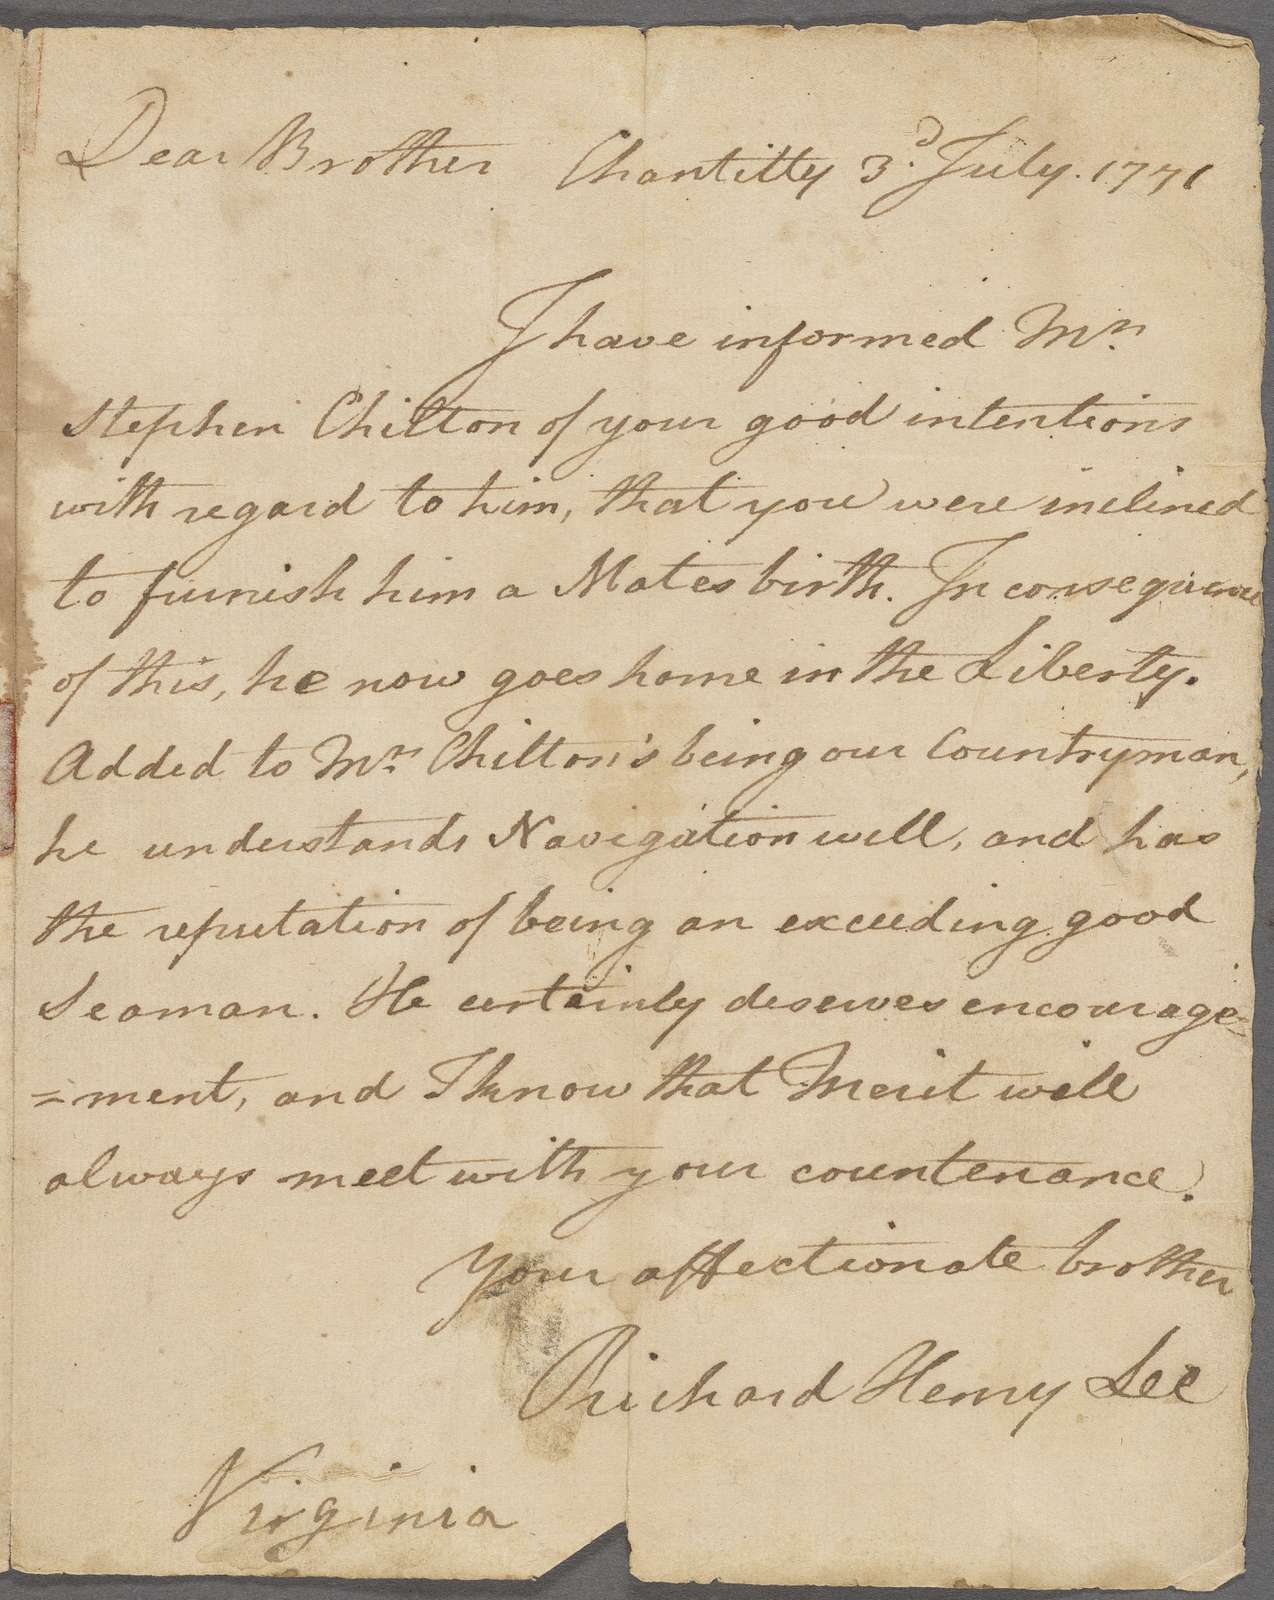 Dear Brother Chantilly 3d. July. 1771
I have informed Mr.
Stephen Chilton of your good intentions
with regard to him, that you were inclined
to furnish him a Mates birth. In consequence
of this, he now goes home in the Liberty.
Added to Mr. Chilton's being our Countryman,
he understands Navigation well, and has
the reputation of being an exceeding good
Seaman. He certainly deserves encourage=
=ment, and I know that Merit will
always meet with your countenance.
Your affectionate brother
Richard Henry Lee
Virginia